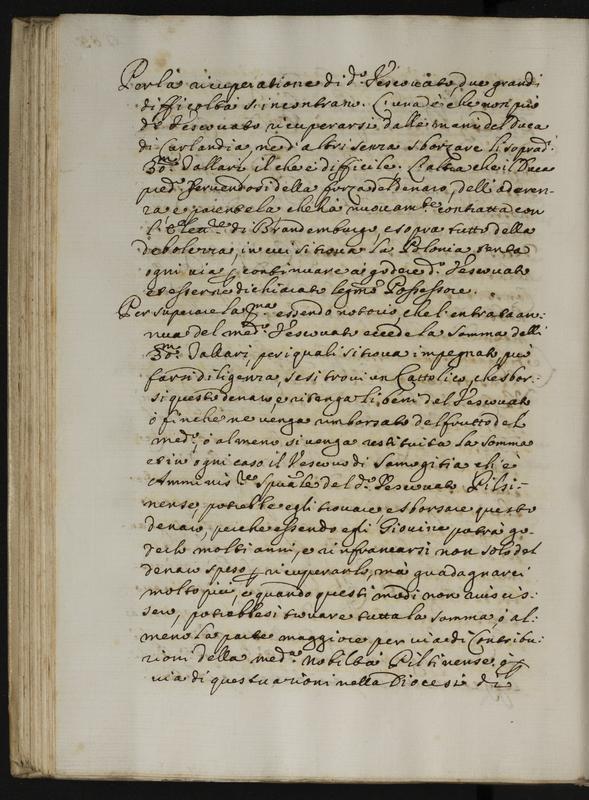 Per la ricuperatione di d.º Vescovato, due grandi
difficoltà s'incontrano. L'una è che non può
d.º Vescovato ricuperarsi dalle mani del Duca
di Curlandia, ne d'altri senza sborzare li soprad.i
30.m Tallari, il che è difficile. L'altra che il Duca
med.º servendosi della forza del denaro, dell'aderen-
za e parentela che hà nuovam.te contratta con
l'Elett.re di Brandemburgo, e sopra tutto della
debolezza, in cui si trova la Polonia tenta
ogni via p continuare a godere d.º Vescovato
et esserne dichiarato legmo Possessore.
Per superare la p.ma essendo notorio, che l'entrata an:
nua del med.º Vescovato eccede la somma delli
30.m Tallari, per i quali si trova impegnato, può
farsi diligenza, se si trovi un Cattolico, che sbor:
si questo denaro, e ritenga li beni del Vescovato
ò finche ne venga rimborsato del frutto del
med.º, ò almeno si venga restituita la somma
et in ogni caso il Vescovo di Samogitia che è
Amminis.re Spuale del d.º Vescovato Pilti-
nense, potrebbe egli trovare e sborsare questo
denaro, perche essendo egli Giovine potrà go-
derlo molti anni, e rinfrancarsi non solo del
denaro speso p ricuperarlo, ma guadagnarci
molto più, e quando questi modi non riuscis-
sero, potrebbesi trovare tutta la somma, ò al:
meno la parte maggiore per via di Contribu:
zioni della med.a nobiltà Piltinense, ò p
via di questuazioni nella Diocesi di